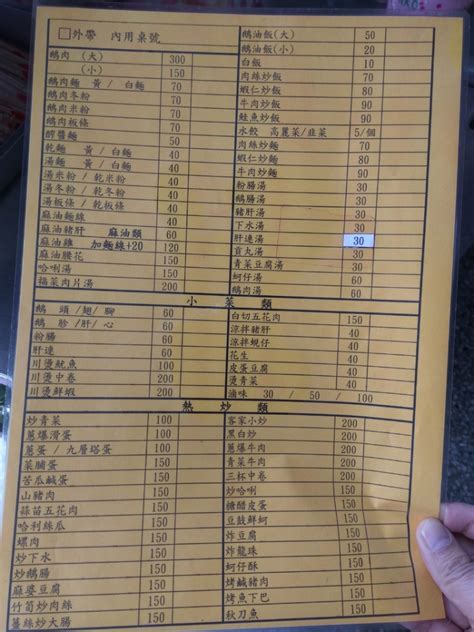 □外帶 內用桌號
鵝肉 (大) 300
(小) 150
鵝肉麵 黃 / 白麵 70
鵝肉冬粉 70
鵝肉米粉 70
鵝肉板條 70
醡醬麵 50
乾麵 黃 / 白麵 40
湯麵 黃 / 白麵 40
湯米粉 / 乾米粉 40
湯冬粉 / 乾冬粉 40
湯板條 / 乾板條 40
麻油麵線 40
麻油豬肝 麻油類 60
麻油雞 加麵線+20 120
麻油腰花 60
哈唎湯 60
福菜肉片湯 200
鵝油飯(大) 50
鵝油飯(小) 20
白飯 10
肉絲炒飯 70
蝦仁炒飯 80
牛肉炒飯 90
鮭魚炒飯 90
水餃 高麗菜/韭菜 5/個
肉絲炒麵 70
蝦仁炒麵 80
牛肉炒麵 90
粉腸湯 30
鵝腸湯 30
豬肝湯 30
下水湯 30
肝連湯 30
貢丸湯 30
青菜豆腐湯 30
蚵仔湯 60
鵝肉湯 30
小菜類
鵝 頭 /翅/ 腳 60
鵝 胗 /肝/ 心 60
粉腸 60
肝連 60
川燙魷魚 100
川燙中卷 200
川燙鮮蝦 200
白切五花肉 150
涼拌豬肝 100
涼拌蜆仔 100
花生 50
皮蛋豆腐 50
燙青菜 50
滷味 30 / 50 / 100
熱炒類
炒青菜 100
蔥爆滑蛋 100
蔥蛋 / 九層塔蛋 100
菜脯蛋 100
苦瓜鹹蛋 150
山豬肉 150
蒜苗五花肉 150
哈利絲瓜 150
螺肉 150
炒下水 150
炒鵝腸 150
麻婆豆腐 150
竹筍炒肉絲 150
薑絲炒大腸 150
客家小炒 200
黑白炒 200
蔥爆牛肉 200
青菜牛肉 200
三杯中卷 200
炒哈唎 150
糖醋皮蛋 150
豆鼓鮮蚵 150
炸豆腐 150
炸龍珠 150
蚵仔酥 150
烤鹹豬肉 150
烤下巴 150
秋刀魚 150